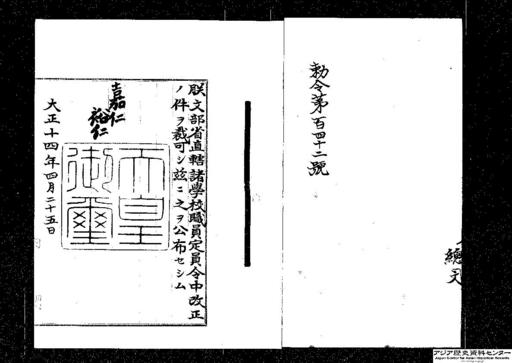 勅令第百四十二號
朕文部省直轄諸學校職員定員令中改正
ノ件ヲ裁可シ玆ニ之ヲ公布セシム
嘉仁
裕仁
天皇
御璽
大正十四年四月二十五日
アジア歴史資料センター
Japan Center for Asian Historical Records